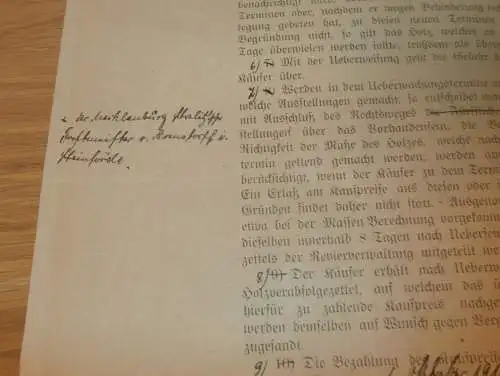 benachrichtigt wird.
Terminen aber, nachdem er wegen Behinderung
legung gebeten hat, zu diesen neuen Terminen
Begründung nicht, so gilt das Holz, welches an
Tage überwiesen werden sollte, trotzdem als über
6) Mit der Ueberweisung geht die Gefahr
Käufer über.
7) Werden in dem Ueberweisungstermine
welche Ausstellungen gemacht, so entscheidet
x der Mecklenburg Strelitzsche
Forstmeister v. in
Steinförde.
mit Ausschluß des Rechtsweges
stellungen über das Vorhandensein, die
Richtigkeit der Maße des Holzes, welche nach
termin geltend gemacht werden, werden
berücksichtigt, wenn der Käufer zu dem Term
Ein Erlaß am Kaufpreise aus diesen oder
Gründen findet daher nicht statt. Ausgenom
etwa bei der Massen Berechnung vorgekom
dieselben innerhalb 8 Tagen nach Uebersen
zettels der Revierverwaltung mitgeteilt
8) Der Käufer erhält nach Ueberw
Holzverabfolgezettel, auf welchem das
hierfür zu zahlende Kaufpreis nachge
werden demselben auf Wunsch gegen
zugesandt.
9) Die Bezahlung des Kaufpreises